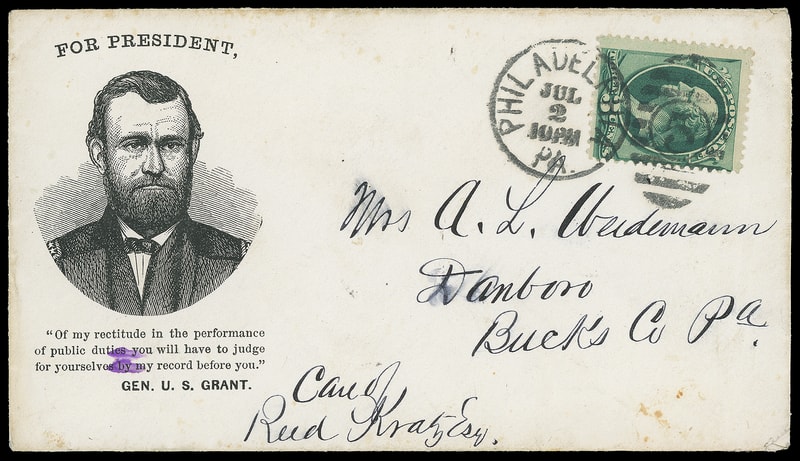 FOR PRESIDENT,
"Of my rectitude in the performance
of public duties you will have to judge
for yourselves by my record before you."
GEN. U. S. GRANT.
PHILADEL
JUL
2
10PM
PA.
Mrs A. L. Weidemann
Danboro
Bucks Co Pa.
Care of
Reed Kratz Esq.